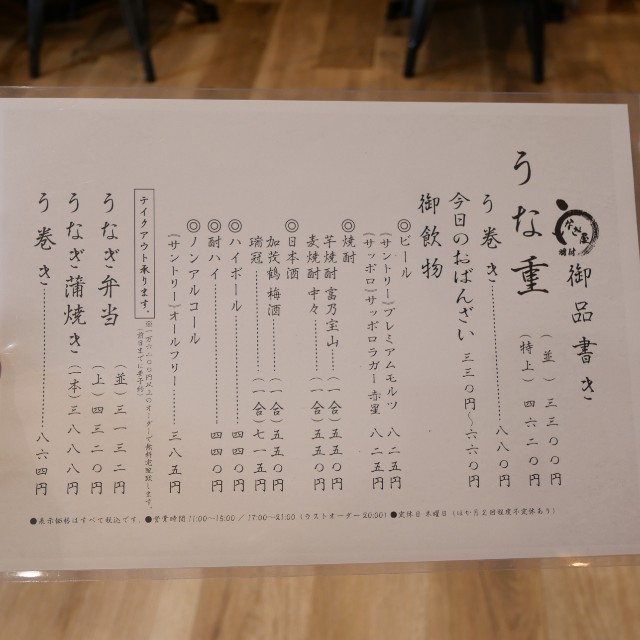 うなぎ屋
御品書き
うな重
（並）三三〇〇円
（特上）四六二〇円
う巻き………八八〇円
今日のおばんざい 三三〇円～六六〇円
御飲物
◎ビール
（サントリー）プレミアムモルツ
（サッポロ）サッポロラガー赤星 八二五円
◎焼酎
芋焼酎 富乃宝山……（一合）五五〇円
麦焼酎 中々……（一合）五五〇円
◎日本酒
加茂鶴 梅酒……（一合）五五〇円
瑞冠……（一合）七一五円
◎ハイボール……四四〇円
◎酎ハイ……四四〇円
◎ノンアルコール
（サントリー）オールフリー……三八五円
テイクアウト承ります。
※一万の二〇〇円以上のオーダーで無料宅配致します。
（前日までに要予約）
うなぎ弁当
（並）三一三二円
（上）四三二〇円
うなぎ蒲焼き（一本）三八八八円
う巻き………八六四円
●表示価格はすべて税込です。●営業時間 11:00～15:00 / 17:00～21:00（ラストオーダー 20:00）●定休日 木曜日（ほか月2回程度不定休あり）